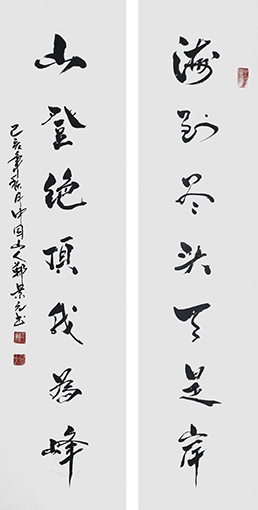 海到尽头天是岸
山登绝頂我為峰
己亥年月中国山人鄭景元书